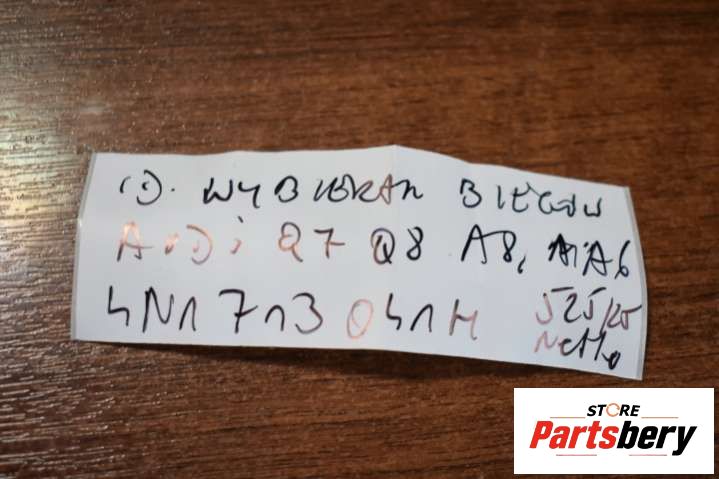 WYBIERAK BIEGÓW
AUDi Q7 Q8 A8, A6
4N1 713 041 M
Netto
STORE
Partsbery